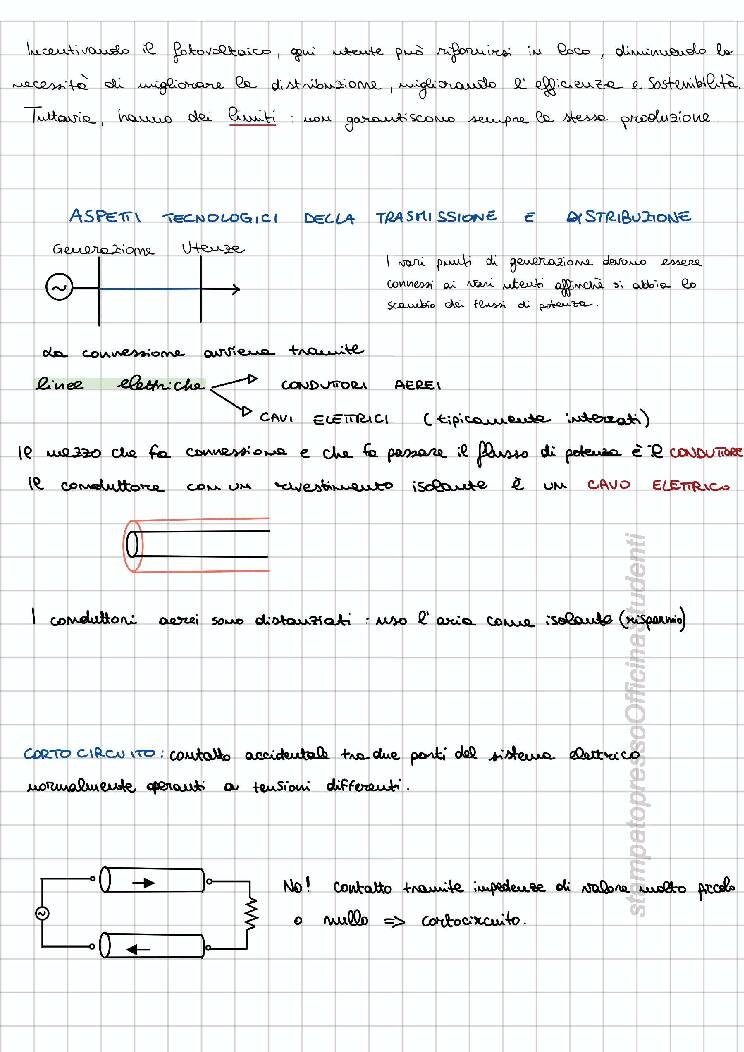 Incentivando il fotovoltaico, ogni utente può rifornirsi in loco, diminuendo la
necessità di migliorare la distribuzione, migliorando l'efficienza e sostenibilità.
Tuttavia, hanno dei limiti: non garantiscono sempre la stessa produzione
ASPETTI TECNOLOGICI DELLA TRASMISSIONE E DISTRIBUZIONE
Generazione Utenze
I vari punti di generazione devono essere
connessi ai vari utenti affinchè si abbia lo
scambio dei flussi di potenza.
~
La connessione avviene tramite
linee elettriche CONDUTTORI AEREI
CAVI ELETTRICI (tipicamente interrati)
Il mezzo che fa connessione e che fa passare il flusso di potenza è il CONDUTTORE
Il conduttore con un rivestimento isolante è un CAVO ELETTRICO
I conduttori aerei sono distanziati: uso l'aria come isolante (risparmio)
CORTO CIRCUITO: contatto accidentale tra due parti del sistema elettrico
normalmente operanti a tensioni differenti.
~
No! Contatto tramite impedenze di valore molto piccolo
o nullo => cortocircuito.
stampatopressoOfficinaStudenti